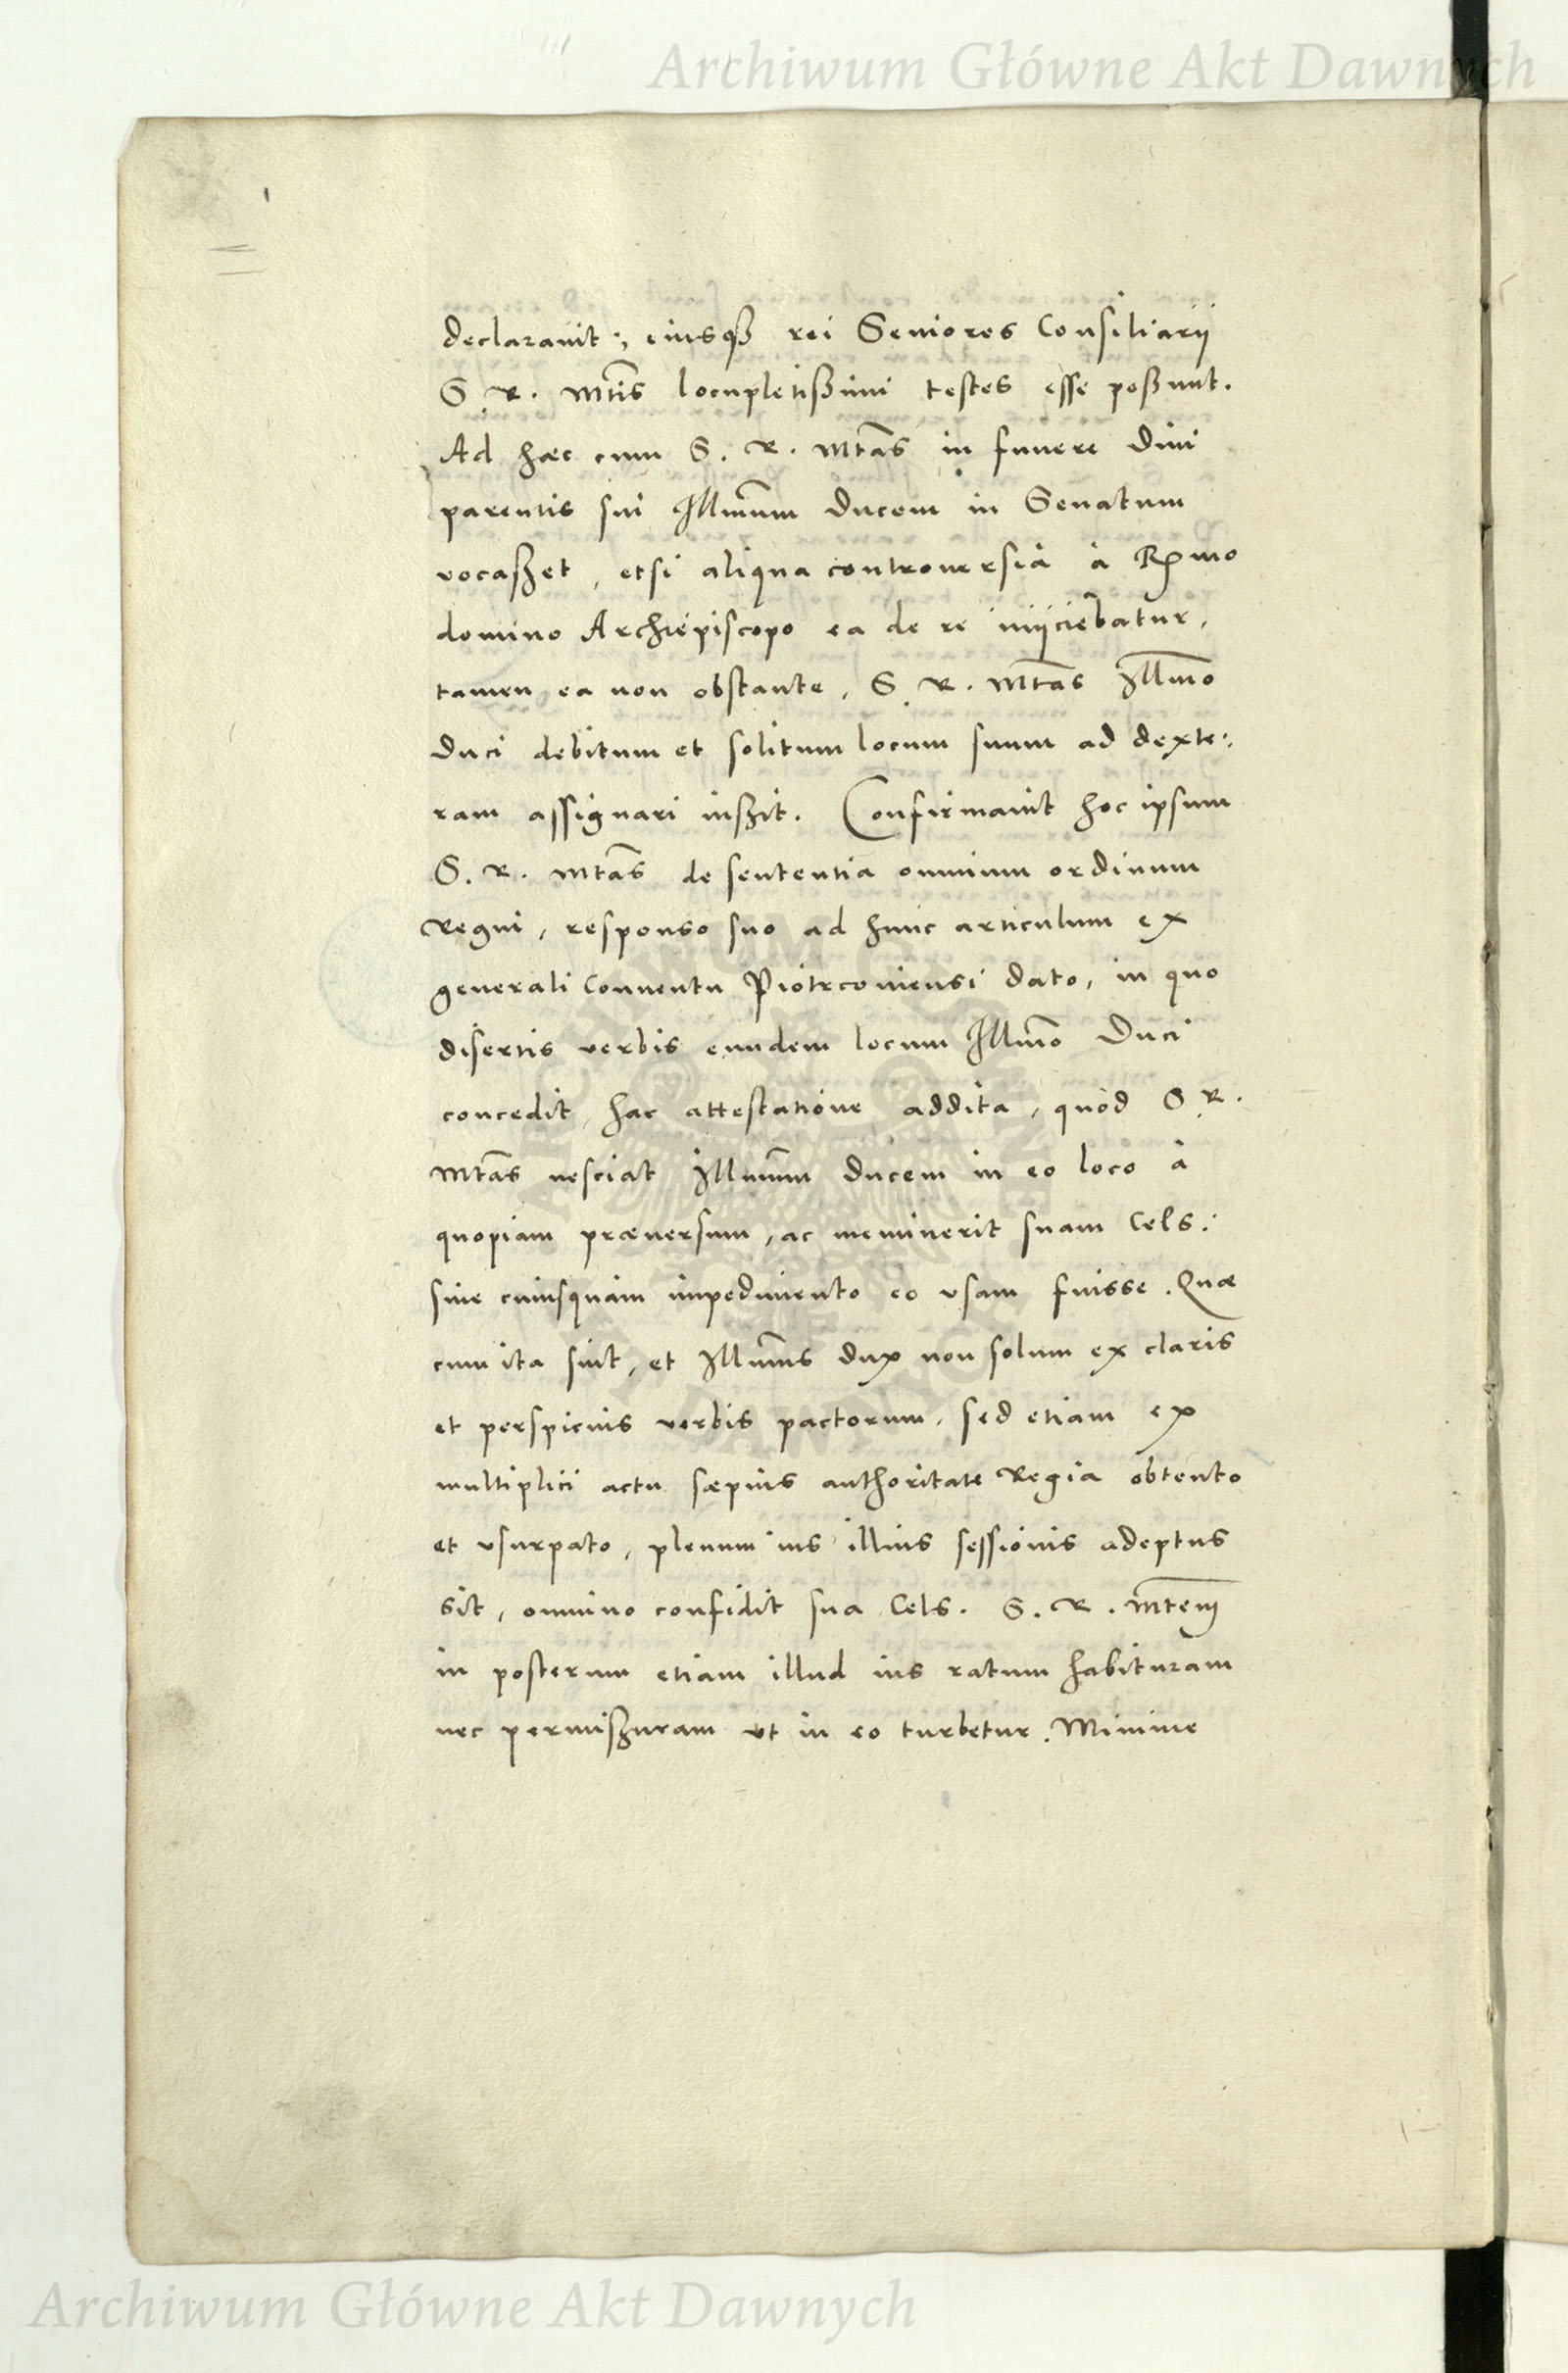 Archiwum Główne Akt Dawnych
declarauit:, eiusqꝫ rei Seniores Consiliarij
S. R. Mtis locupletißimi testes esse poßunt.
Ad hæc cum S. R. Mtas in funere Diui
parentis sui Illmum Ducem in Senatum
vocaßet, etsi aliqua controuersia à Rmo
domino Archiepiscopo ea de re inijciebatur,
tamen ea non obstante, S. R. Mtas Illmo
Duci debitum et solitum locum suum ad dexte:
ram assignari iußit. Confirmauit hoc ipsum
S. R. Mtas de sententia omnium ordinum
Regni, responso suo ad hunc articulum ex
generali Conuentu Piotrcouiensi dato, in quo
disertis verbis eundem locum Illmo Duci
concedit, hac attestatione addita, quòd S. R.
Mtas nesciat Illmum Ducem in eo loco à
quopiam præuersum, ac meminerit suam Cels:
siue cuiusquam impedimento eo vsam fuisse. Quæ
cum ita sint, et Illmus dux non solum ex claris
et perspicuis verbis pactorum, sed etiam ex
multiplici actu sæpius authoritate Regia obtento
et vsurpato, plenum ius illius sessionis adeptus
sit, omnino confidit sua Cels. S. R. Mtem
in posterum etiam illud ius ratum habituram
nec permißuram vt in eo turbetur. Minime
Archiwum Główne Akt Dawnych